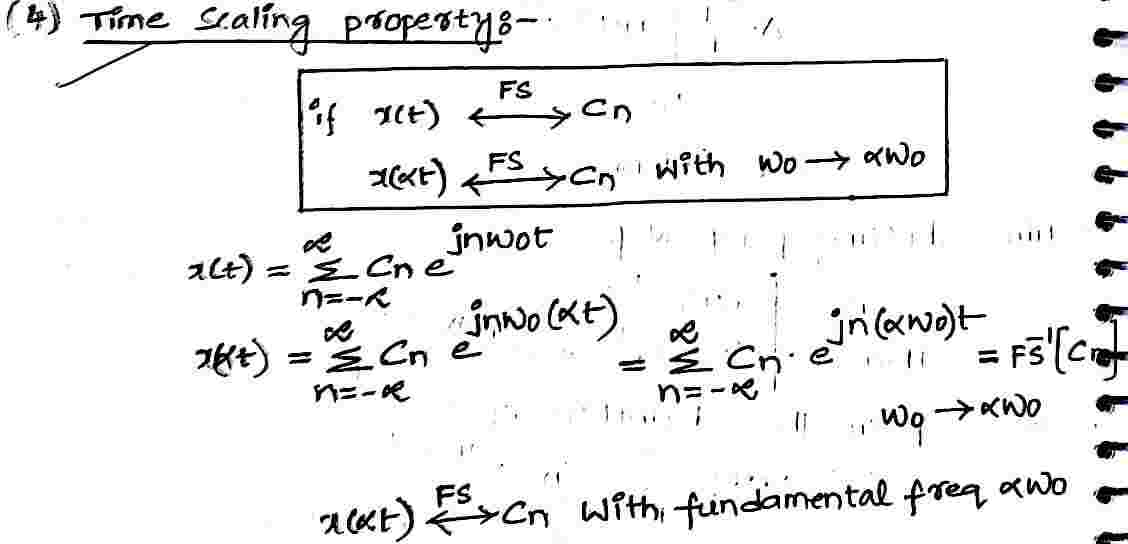 (4) Time Scaling property:-
if x(t) <--FS--> Cn
x(αt) <--FS--> Cn with ω0 → αω0
x(t) = ∑_{n=-∞}^{∞} Cn e^{jnω0t}
x(αt) = ∑_{n=-∞}^{∞} Cn e^{jnω0(αt)} = ∑_{n=-∞}^{∞} Cn · e^{jn(αω0)t} = FS^{-1}[Cn]
ω0 → αω0
x(αt) <--FS--> Cn with fundamental freq αω0